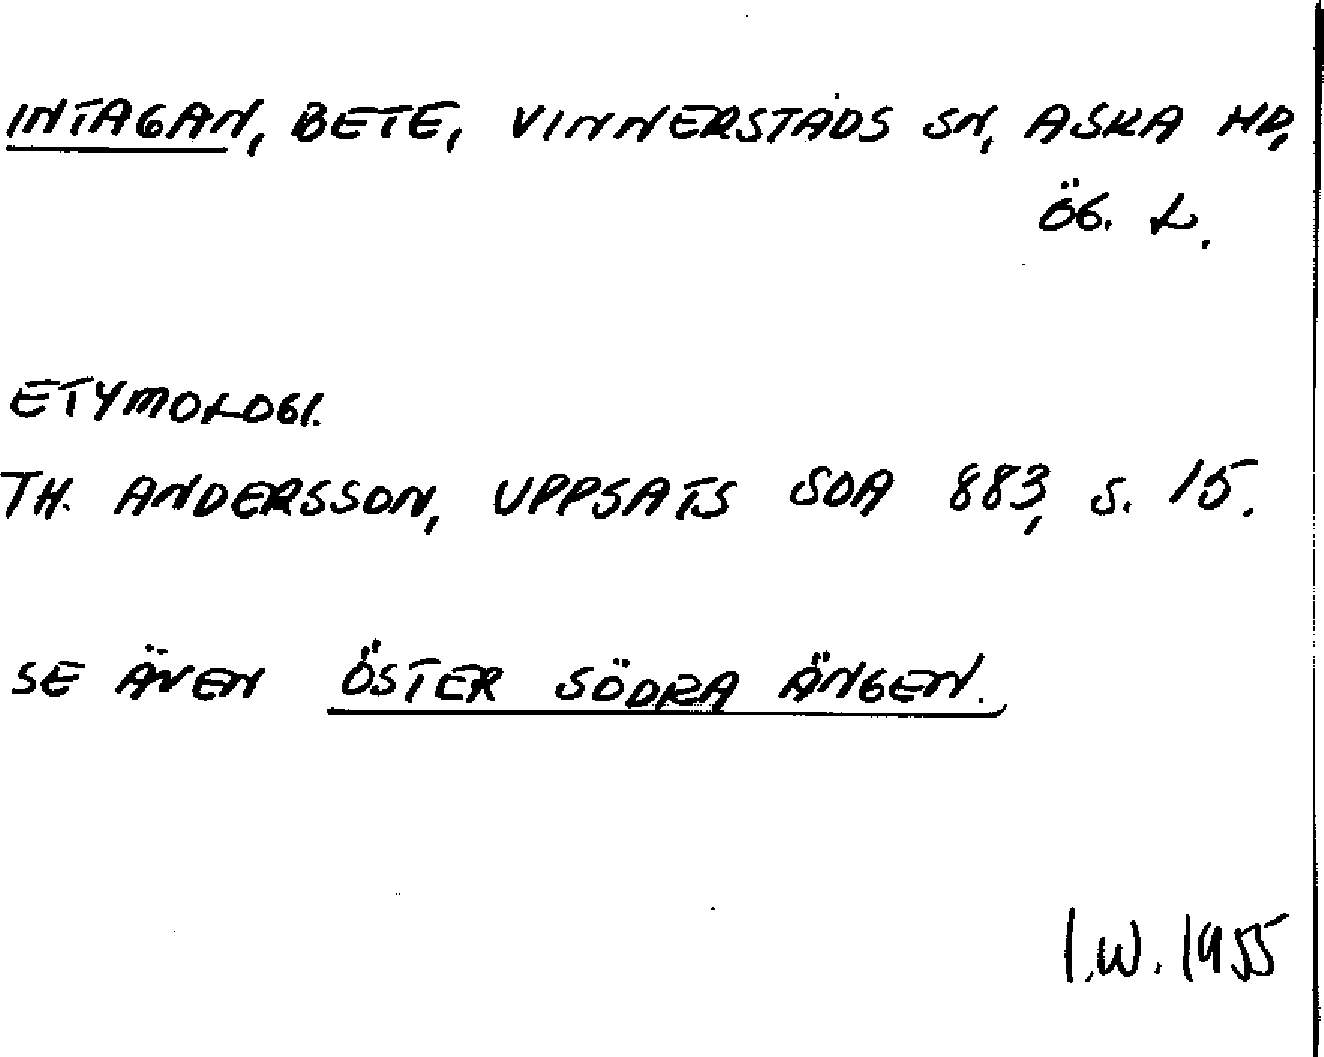 INTAGAN, BETE, VINNERSTADS SN, ASKA HD,
ÖG. L.
ETYMOLOGI.
TH. ANDERSSON, UPPSATS SOA 883, S. 15.
SE ÄVEN ÖSTER SÖDRA ÄNGEN.
I.W. 1955